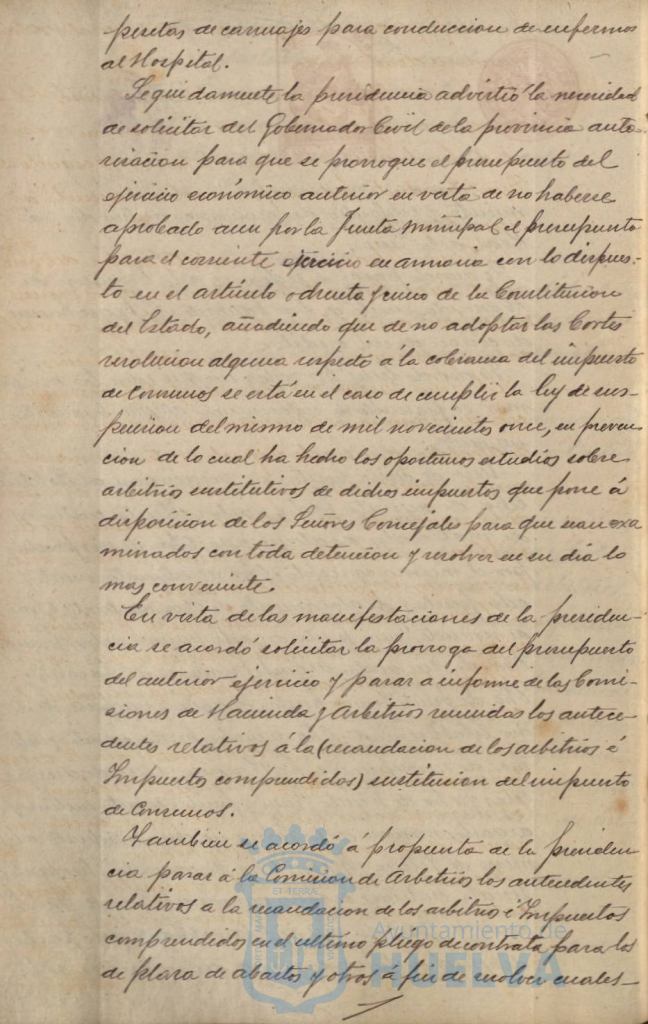 pesetas de carruajes para conduccion de enfermos
al Hospital.
Seguidamente la presidencia advirtió la necesidad
de solicitar del Gobernador Civil de la provincia auto-
rizacion para que se prorrogue el presupuesto del
ejercicio económico anterior en vista de no haberse
aprobado aun por la Junta municipal el presupuesto
para el corriente ejercicio en armonia con lo dispues-
to en el artículo ochenta y cinco de la Constitucion
del Estado, añadiendo que de no adoptar las Cortes
resolucion alguna respecto á la cobranza del impuesto
de Consumos se está en el caso de cumplir la ley de sus-
pension del mismo de mil novecientos once, en preven-
cion de lo cual ha hecho los oportunos estudios sobre
arbitrios sustitutivos de dichos impuestos que pone á
disposicion de los Señores Concejales para que sean exa
minados con toda detencion y resolver en su dia lo
mas conveniente.
En vista de las manifestaciones de la presiden-
cia se acordó solicitar la prorroga del presupuesto
del anterior ejercicio y pasar a informe de las Comi-
siones de Hacienda y Arbitrios reunidas los antece-
dentes relativos á la (recaudacion de los arbitrios é
Impuestos comprendidos) sustitucion del impuesto
de Consumos.
Tambien se acordó á propuesta de la presiden-
cia pasar á la Comision de Arbitrios los antecedentes
relativos a la recaudacion de los arbitrios é Impuestos
comprendidos en el ultimo pliego de contrata para los
de plaza de abastos y otros á fin de resolver cuales-
Ayuntamiento de
HUELVA